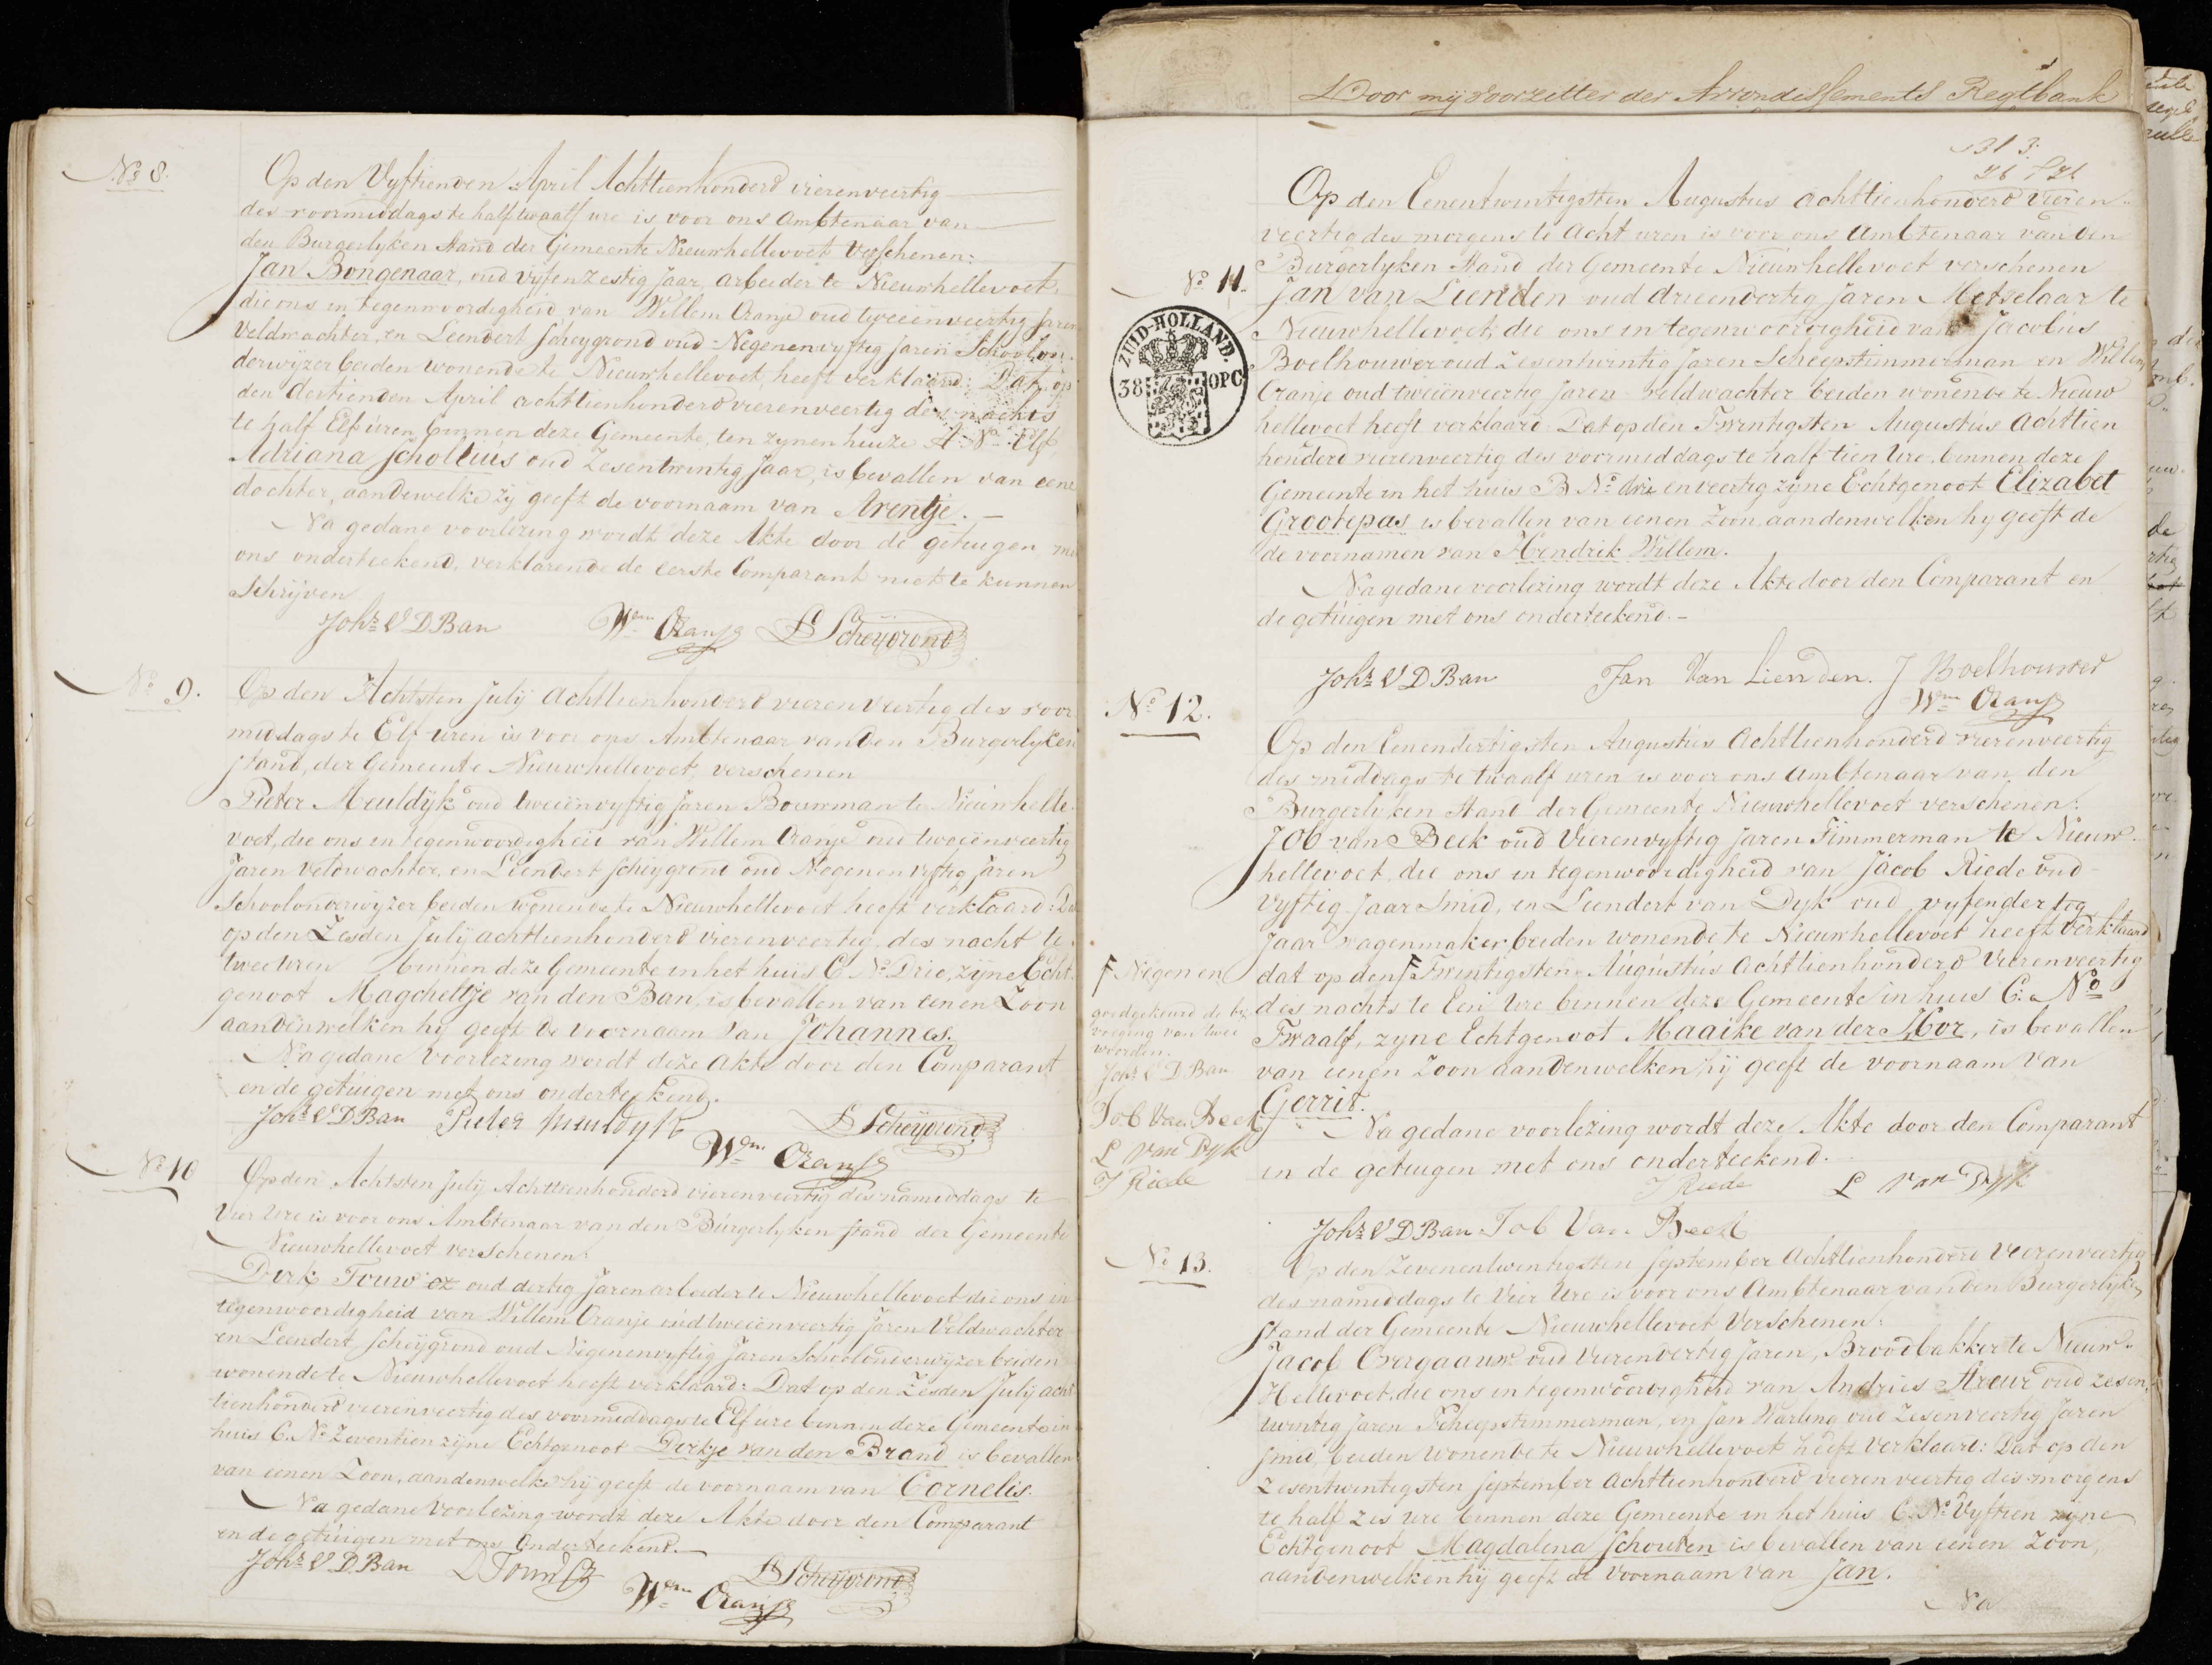 No 8.
Op den Vyftienden April Achttienhonderd vierenveertig
des voormiddags te half twaalf ure is voor ons Ambtenaar van
den Burgerlyken Stand der Gemeente Nieuwhellevoet Verschenen:
Jan Bongenaar, oud vyfenzestig Jaar, arbeider te Nieuwhellevoet,
die ons in tegenwoordigheid van Willem Oranje oud tweeenveertig Jaren
Veldwachter, en Leendert Scheygrond oud Negenenvyftig Jaren Schoolon-
derwyzer beiden wonende te Nieuwhellevoet, heeft verklaard: Dat op
den dertienden April achttienhonderd vierenveertig des nachts
te half Elf uren, binnen deze Gemeente, ten zynen huize A: No: Elf,
Adriana Scholtuis oud Zesentwintig Jaar, is bevallen van eene
dochter, aandewelke zy geeft de voornaam van Arentje. —
Na gedane voorlezing wordt deze Akte door de getuigen met
ons onderteekend, verklarende de eerste Comparant niet te kunnen
Schrijven
Johs V D Ban Wm Oranje L Scheijgrond
No 9.
Op den Achtsten July Achttienhonderd vierenveertig des voor
middags te Elf uren is voor ons Ambtenaar van den Burgerlyken
Stand, der Gemeente Nieuwhellevoet, verschenen
Pieter Meuldijk oud tweeënvyftig Jaren Bouwman te Nieuwhelle-
voet, die ons in tegenwoordigheid van Willem Oranje oud tweeënveertig
Jaren veldwachter, en Leendert Scheygrond oud Negenenvyftig Jaren
Schoolonderwyzer beiden wonende te Nieuwhellevoet heeft verklaard: Dat
op den Zesden July achttienhonderd vierenveertig, des nacht te
twee uren binnen deze Gemeente in het huis C No Drie, zyne Echt-
genoot Magcheltje van den Ban, is bevallen van eenen Zoon
aandenwelken hy geeft de voornaam van Johannes.
Na gedane voorlezing wordt deze Akte door den Comparant
en de getuigen met ons onderteekend.
Johs V D Ban Pieter Meuldyk L Scheijgrond
Wm Oranje
No 10
Op den Achtsten July Achttienhonderd vierenveertig des namiddags te
Vier Ure is voor ons Ambtenaar van den Burgerlyken Stand der Gemeente
Nieuwhellevoet verschenen:
Dirk Touw cz oud dertig Jaren arbeider te Nieuwhellevoet die ons in
tegenwoordigheid van Willem Oranje oud tweeënveertig Jaren Veldwachter
en Leendert Scheygrond oud Negenenvyftig Jaren Schoolonderwyzer beiden
wonende te Nieuwhellevoet heeft verklaard: Dat op den Zesden July acht
tienhonderd vierenveertig des voormiddags te Elf ure binnen deze Gemeente in
huis C. No Zeventien zyne Echtgenoot Dirkje van den Brand is bevallen
van eenen Zoon, aandenwelke hy geeft de voornaam van Cornelis.
Na gedane Voorlezing wordt deze Akte door den Comparant
en de getuigen met ons Onderteekend.
Johs V D Ban D Touw Cz L Scheijgrond
Wm Oranje
Door mij Voorzetter der Arrondissements Regtbank
Bl 3.
Op den Eenentwintigsten Augustus achttienhonderd Vieren-
veertig des morgens te Acht uren is voor ons Ambtenaar van den
Burgerlyken Stand der Gemeente Nieuwhellevoet verschenen
No 11.
Jan van Lienden oud drieendertig Jaren Metselaar te
Nieuwhellevoet, die ons in tegenwoordigheid van Jacobus
Boelhouwer oud Zeventwintig Jaren Scheepstimmerman en Willem
ZUID-HOLLAND.
38 OPC
Oranje oud tweeënveertig Jaren Veldwachter beiden wonende te Nieuw
hellevoet heeft verklaard: Dat op den Twintigsten Augustus Achttien
honderd vierenveertig des voormiddags te half tien Ure, binnen deze
Gemeente in het huis B No drie enveertig zyne Echtgenoot Elizabet
Grootepas is bevallen van eenen Zoon aandenwelken hy geeft de
de voornamen van Hendrik Willem.
Na gedane voorlezing wordt deze Akte door den Comparant en
de getuigen met ons onderteekend. —
Johs V D Ban Jan Van Lienden. J Boelhouwer
Wm Oranje
No 12.
Op den Eenendertigsten Augustus Achttienhonderd vierenveertig
des middags te twaalf uren is voor ons Ambtenaar van den
Burgerlyken Stand der Gemeente Nieuwhellevoet verschenen:
Job van Beek oud Vierenvyftig Jaren Timmerman te Nieuw-
hellevoet, die ons in tegenwoordigheid van Jacob Riede oud
vyftig Jaar Smid, en Leendert van Dyk oud vyfendertig
Jaar wagenmaker beiden wonende te Nieuwhellevoet heeft verklaard
dat op den F Twintigsten Augustus Achttienhonderd Vierenveertig
des nachts te Een Ure binnen deze Gemeente in huis C: No
Twaalf, zyne Echtgenoot Maaike van der Hor, is bevallen
van eenen Zoon aandenwelken hij geeft de voornaam van
Gerrit.
F Negen en
goedgekeurd de by
voeging van twee
woorden.
Johs V D Ban
Job Van Beek
L van Dyk
J Riede
Na gedane voorlezing wordt deze Akte door den Comparant
en de getuigen met ons onderteekend.
J Riede L van Dyk
Johs V D Ban Job Van Beek
No 13.
Op den Zevenentwintigsten September Achttienhonderd Vierenveertig
des namiddags te Vier Ure is voor ons Ambtenaar van den Burgerlyken
Stand der Gemeente Nieuwhellevoet Verschenen:
Jacob Overgaauw oud Vierenveertig Jaren, Broodbakker te Nieuw-
Hellevoet, die ons in tegenwoordigheid van Andries Streur oud zesen
twintig Jaren Scheepstimmerman, en Jan Warling oud Zesenveertig Jaren
Smid, beiden Wonende te Nieuwhellevoet heeft Verklaard: Dat op den
Zesentwintigsten September achttienhonderd vierenveertig des morgens
te half zes ure binnen deze Gemeente in het huis C. No Vyftien zyne
Echtgenoot Magdalena Schouten is bevallen van eenen Zoon,
aandenwelken hij geeft de Voornaam van Jan.
Na